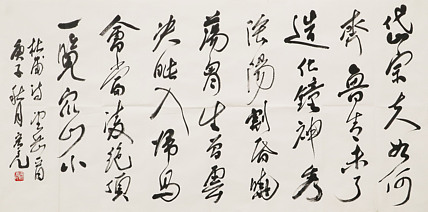 岱宗夫如何
齊魯青未了
造化鐘神秀
陰陽割昏曉
蕩胸生曾雲
決眥入歸鳥
會當凌絕頂
一覽眾山小
杜甫詩望岳一首
庚子秋月